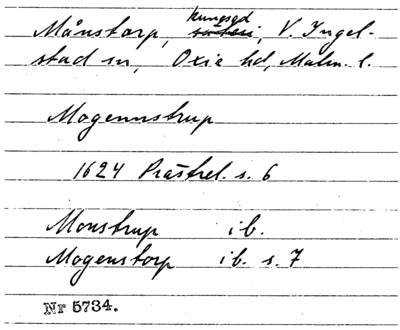 kungsgd
Månstorp, säteri, V. Ingel-
stad sn, Oxie hd, Malm. l.
Mogennstrup
1624 Prästrel. s. 6
Monstrup ib.
Mogenstorp ib. s. 7
Nr 5734.